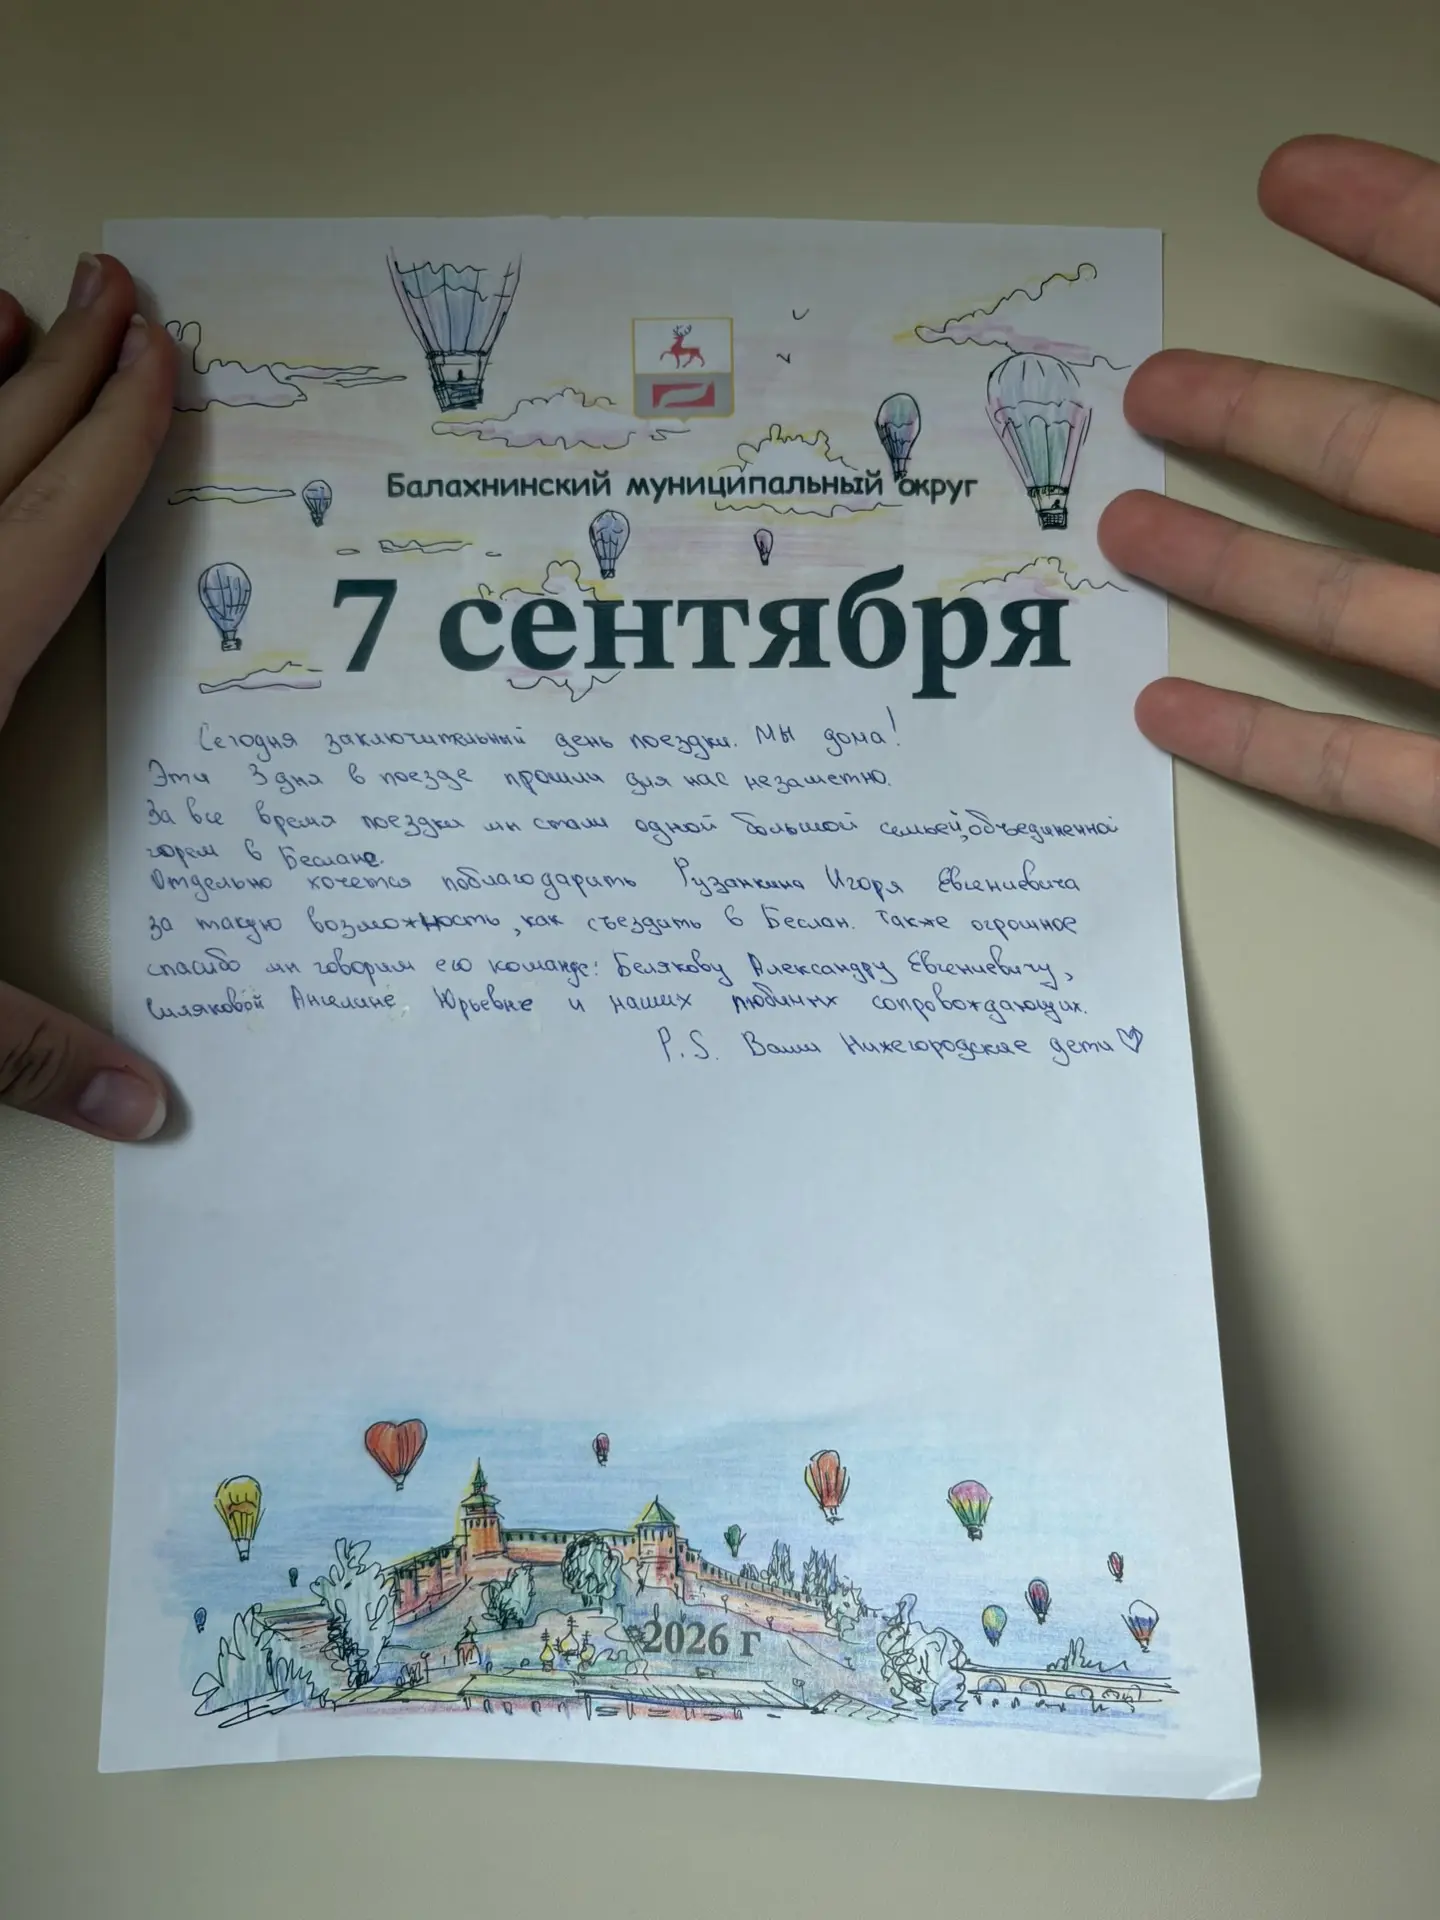 Балахнинский муниципальный округ
7 сентября
Сегодня заключительный день поездки. Мы дома!
Эти 3 дня в поезде прошли для нас незаметно.
За все время поездки мы стали одной большой семьей, объединенной
горем в Беслане.
Отдельно хочется поблагодарить Рузанкина Игоря Евгениевича
за такую возможность, как съездить в Беслан. Также огромное
спасибо мы говорим его команде: Белякову Александру Евгениевичу,
Шляковой Ангелине, Юрьевне и наших любимых сопровождающих.
P.S. Ваши Нижегородские дети ♡
2026 г